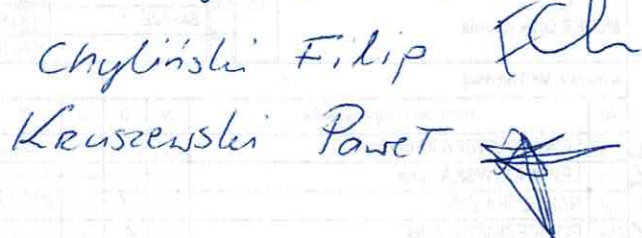 Chyliński Filip FCh
Kruszewski Paweł